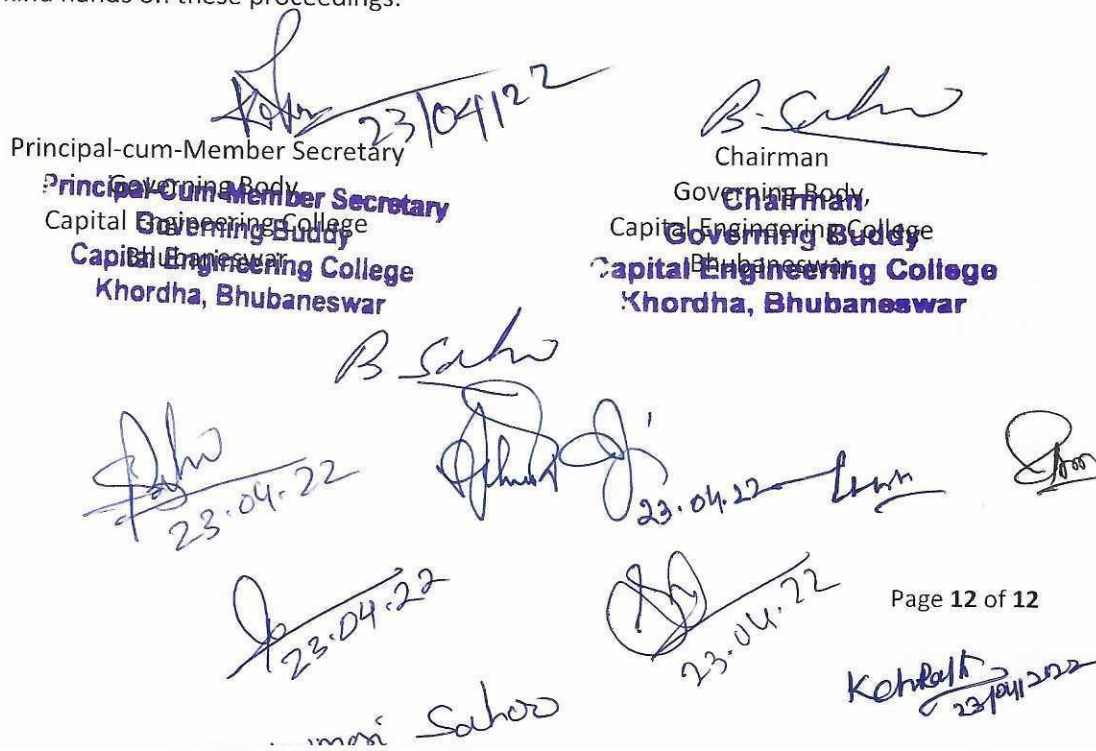 kind hands on these proceedings.
23/04/22
B. Sahu
Principal-cum-Member Secretary
Governing Body,
Capital Engineering College
Bhubaneswar
Principal-Cum-Member Secretary
Governing Buddy
Capital Engineering College
Khordha, Bhubaneswar
Chairman
Governing Body,
Capital Engineering College
Bhubaneswar
Chairman
Governing Buddy
Capital Engineering College
Khordha, Bhubaneswar
B Sahu
23.04.22
23.04.22
23.04.22
23.04.22
Page 12 of 12
23/04/2022
Sahoo